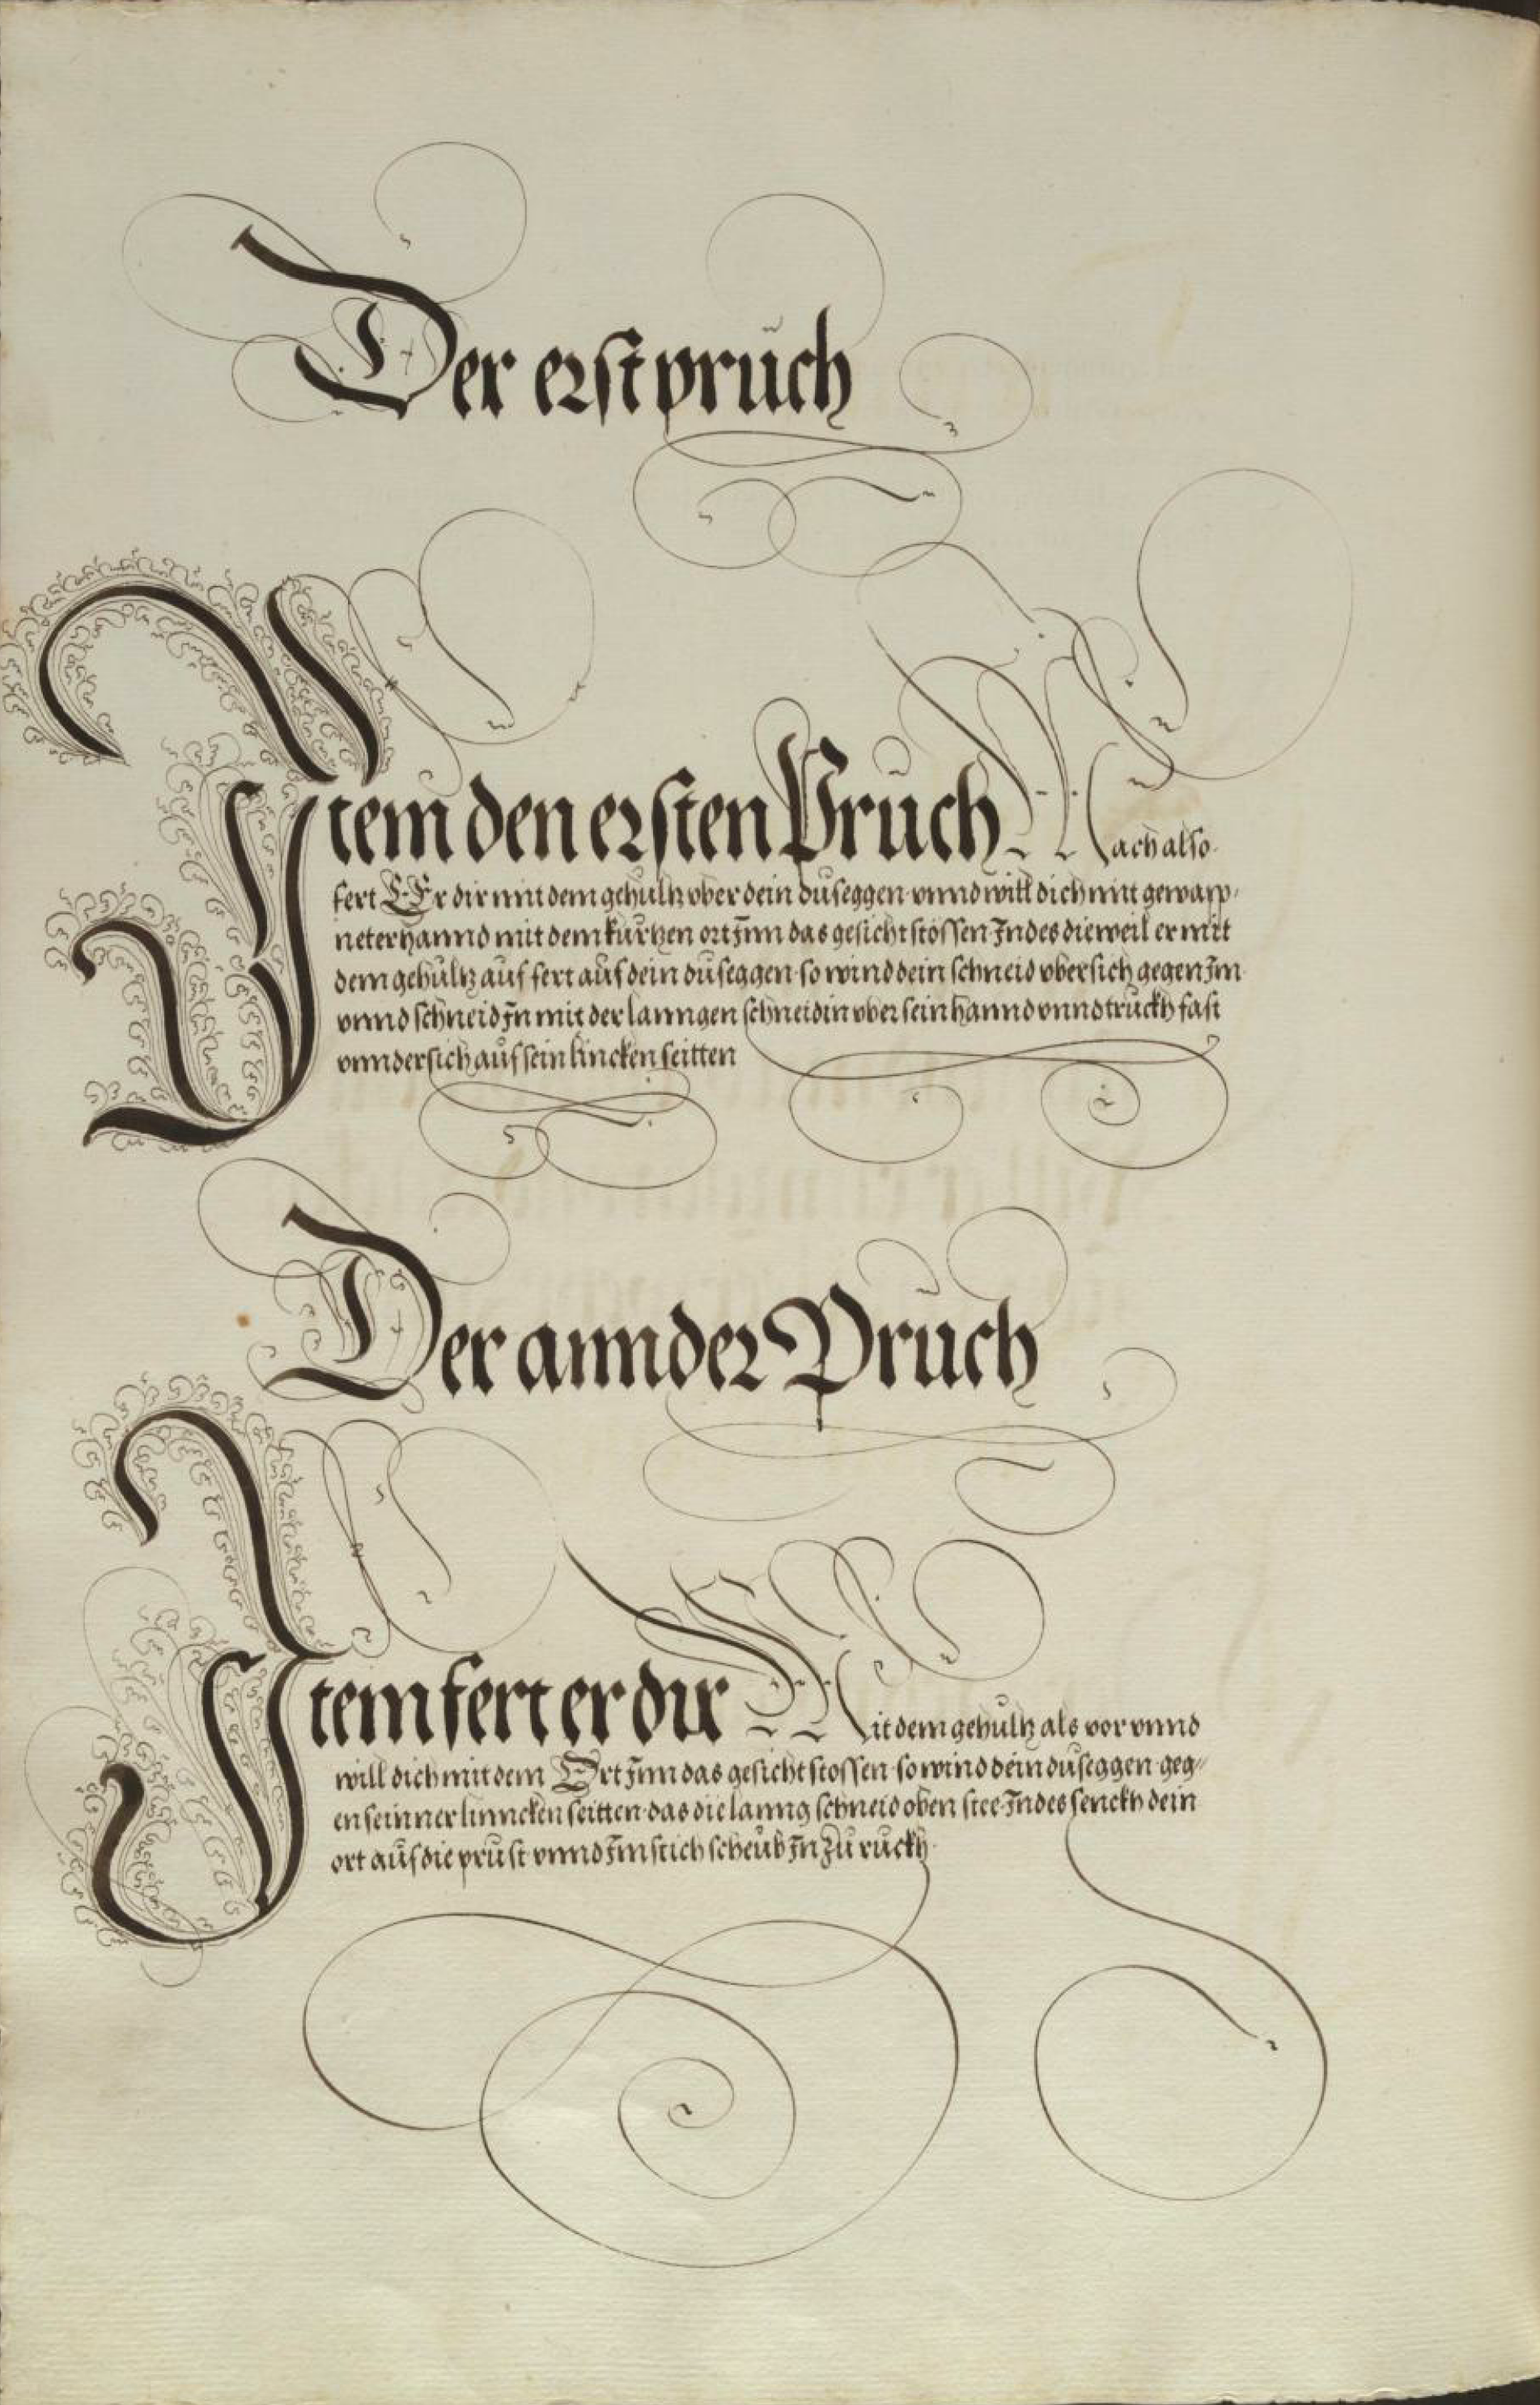 Der erst pruch
Item den ersten Pruch Mach also
fert Er dir mit dem gehultz vber dein duseggen vnnd will dich mitt gewapp-
neter hannd mit dem kurtzen ort Inn das gesicht stossen Indes dieweil er mit
dem gehultz auf fert auf dein duseggen so wind dein schneid vbersich gegen Im
vnnd schneid In mit der lanngen schneidin vber sein hannd vnnd truckh fast
vnndersich auf sein lincken seitten
Der annder Pruch
Item fert er dir Mit dem gehultz als vor vnnd
will dich mit dem Ort Inn das gesicht stossen so wind dein duseggen geg-
en seinner linncken seitten das die lanng schneid oben stee Indes senckh dein
ort auf die prust vnnd Im stich scheub In zu ruckh